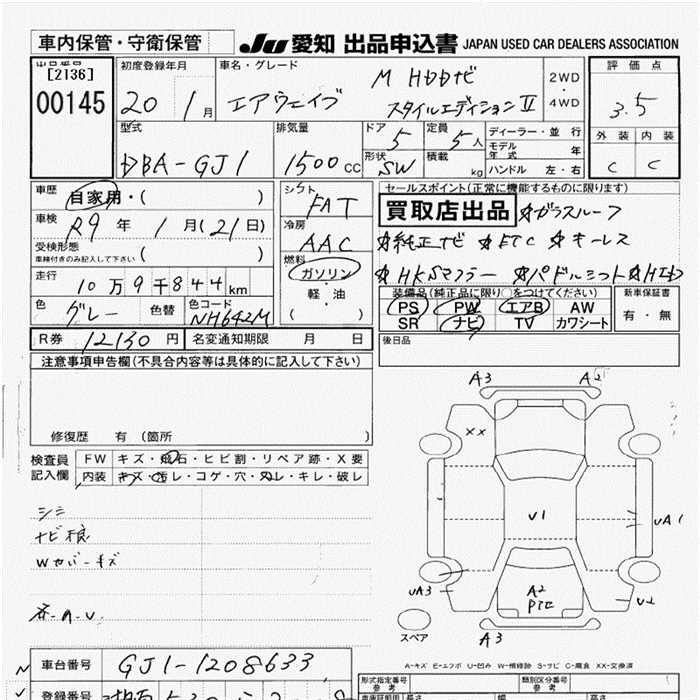 車内保管・守衛保管
JU 愛知 出品申込書 JAPAN USED CAR DEALERS ASSOCIATION
出品番号
[2136]
00145
初度登録年月
20 1月
車名・グレード
M HDDナビ
エアウェイブ スタイルエディション Ⅱ
2WD
・
4WD
評価点
3.5
外装 内装
C C
型式
DBA-GJ1
排気量
1500cc
ドア
5
定員
5人
形状
SW
積載
kg
ディーラー・並行
モデル年式 年
ハンドル 左・右
車歴
自家用・( )
車検
R9年 1月(21日)
受検形態
車検付きのみ記入して下さい ( )
走行
10万9千844km
色
グレー
色替
色コード
NH642M
シフト
FAT
冷房
AAC
燃料
ガソリン
・
軽・油
( )
セールスポイント(正常に機能するものに限ります)
買取店出品 ☆ガラスルーフ
☆純正ナビ ☆ETC ☆キーレス
☆HKSマフラー ☆パドルシフト ☆HID
装備品(純正品に限り○をつけてください)
PS PW エアB AW
SR ナビ TV カワシート
新車保証書
有・無
後日品
R券 12130円
名変通知期限 月 日
注意事項申告欄(不具合内容等は具体的に記入して下さい)
修復歴 有 (箇所 )
検査員記入欄
FW キズ・飛石・ヒビ割・リペア跡・X要
内装 キズ・汚レ・コゲ・穴・スレ・キレ・破レ
シミ
ナビ不良
Wカバーキズ
各A.U
A3 A2
XX
U1
UA1
UA3
A2
U2
A3
スペア
A-キズ E-エクボ U-凹み W-補修跡 S-サビ C-腐食 XX-交換済
車台番号
GJ1-1208633
登録番号
形式指定番号
参考
類別区分番号
参考
長さ 幅 高さ